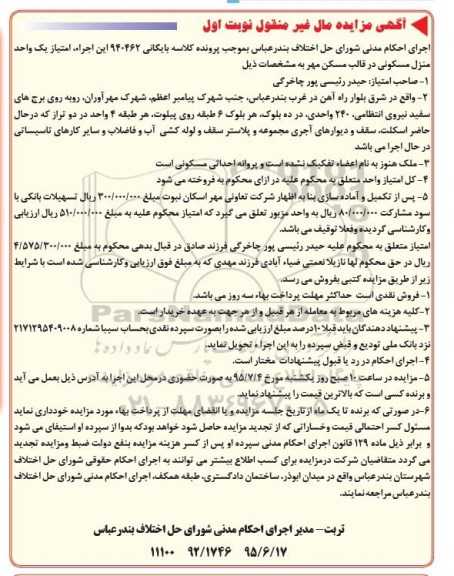 آگهی مزایده مال غیر منقول نوبت اول
اجرای احکام مدنی شورای حل اختلاف بندرعباس بموجب پرونده کلاسه بایگانی ۹۴۰۴۶۲ این اجراء، امتیاز یک واحد
منزل مسکونی در قالب مسکن مهر به مشخصات ذیل
۱- صاحب امتیاز: حیدر رئیسی پور چاخرگی
۲- واقع در شرق بلوار راه آهن در غرب بندرعباس، جنب شهرک پیامبر اعظم، شهرک مهرآوران، روبه روی برج های
سفید نیروی انتظامی، ۲۴۰ واحدی، در ده بلوک، هر بلوک ۶ طبقه روی پیلوت، هر طبقه ۴ واحد در دو تراز که درحال
حاضر اسکلت، سقف و دیوارهای آجری مجموعه و پلاستر سقف و لوله کشی آب و فاضلاب و سایر کارهای تاسیساتی
در حال اجرا می باشد
۳- ملک هنوز به نام اعضاء تفکیک نشده است و پروانه احداثی مسکونی است
۴- کل امتیاز واحد متعلق به محکوم علیه در ازای محکوم به فروخته می شود
۵- پس از تکمیل و آماده سازی بنا به اظهار شرکت تعاونی مهر اسکان نبوت مبلغ ۳۰۰/۰۰۰/۰۰۰ ریال تسهیلات بانکی با
سود مشارکت ۸۰/۰۰۰/۰۰۰ ریال به واحد مزبور تعلق می گیرد که امتیاز محکوم علیه به مبلغ ۵۱۰/۰۰۰/۰۰۰ ریال ارزیابی
وکارشناسی گردیده وفعلا توقیف می باشد.
امتیاز متعلق به محکوم علیه حیدر رئیسی پور چاخرگی فرزند صادق در قبال بدهی محکوم به مبلغ ۴/۵۷۵/۳۰۰/۰۰۰
ریال در حق محکوم لها نازیلا نعمتی ضیاء آبادی فرزند مهدی که به مبلغ فوق ارزیابی وکارشناسی شده است با شرایط
زیر از طریق مزایده کتبی بفروش می رسد.
۱- فروش نقدی است حداکثر مهلت پرداخت بهاء سه روز می باشد.
۲-کلیه هزینه های مربوط به معامله از هر قبیل و از هر جهت به عهده خریدار است.
۳- پیشنهاد دهندگان باید قبلا ۱۰ درصد مبلغ ارزیابی شده را بصورت سپرده نقدی بحساب سیبا شماره ۲۱۷۱۲۹۵۴۰۹۰۰۸
نزد بانک ملی تودیع و قبض سپرده را به این اجراء تحویل نماید.
۴- اجرای احکام در رد یا قبول پیشنهادات مختار است.
۵- مزایده در ساعت ۱۰ صبح روز یکشنبه مورخ ۹۵/۷/۴ به صورت حضوری در محل این اجرا به آدرس ذیل بعمل می آید
و برنده کسی است که بالاترین قیمت را پیشنهاد نماید.
۶-در صورتی که برنده تا یک ماه از تاریخ جلسه مزایده و یا انقضای مهلت از پرداخت بهاء مورد مزایده خودداری نماید
مسئول کسر احتمالی قیمت وخساراتی که از تجدید مزایده حاصل شود خواهد بودکه بدوا از سپرده او استیفای می شود
و برابر ذیل ماده ۱۲۹ قانون اجرای احکام مدنی سپرده او پس از کسر هزینه مزایده بنفع دولت ضبط ومزایده تجدید
می گردد متقاضیان شرکت درمزایده برای کسب اطلاع بیشتر می توانند به اجرای احکام حقوقی شورای حل اختلاف
شهرستان بندرعباس واقع در میدان ابوذر، ساختمان دادگستری، طبقه همکف، اجرای احکام مدنی شورای حل اختلاف
بندرعباس مراجعه نمایند.
تربت- مدیر اجرای احکام مدنی شورای حل اختلاف بندرعباس
۹۵/۶/۱۷ ۹۲/۱۷۴۶ ۱۱۱۰۰